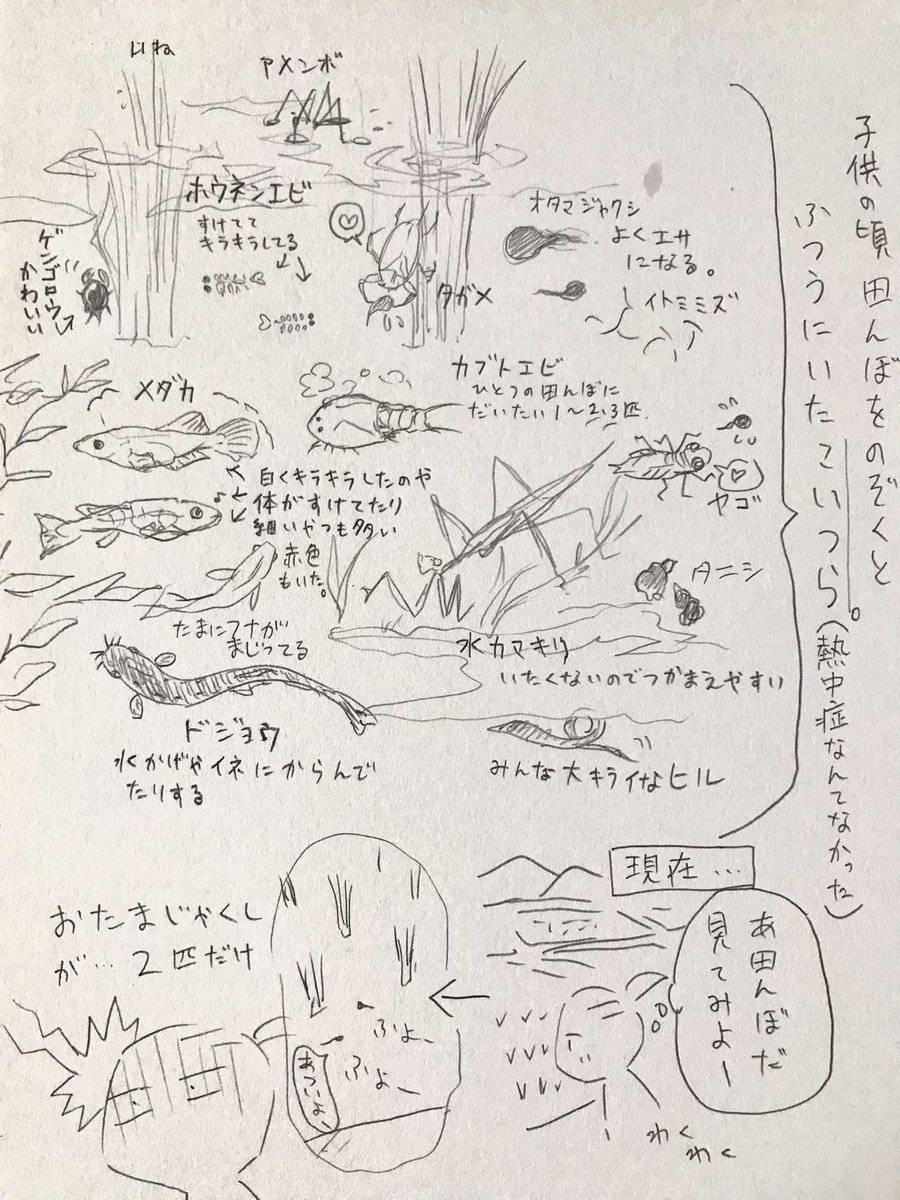 子供の頃田んぼをのぞくと
ふつうにいたこいつら。(熱中症なんてなかった)
いね
アメンボ
ホウネンエビ
すけてて
キラキラしてる
ゲンゴロウ
かわいい
タガメ
オタマジャクシ
よくエサ
になる。
イトミミズ
メダカ
カブトエビ
ひとつの田んぼに
だいたい1〜2.3匹
白くキラキラしたのや
体がすけてたり
細いやつも多い
赤色
もいた。
ヤゴ
タニシ
たまにフナが
まじってる
水カマキリ
いたくないのでつかまえやすい
ドジョウ
水かげやイネにからんで
たりする
みんな大キライなヒル
現在…
あ田んぼだ
見てみよー
わく
わく
おたまじゃくし
が…2匹だけ
ふよー
ふよー
あついよ